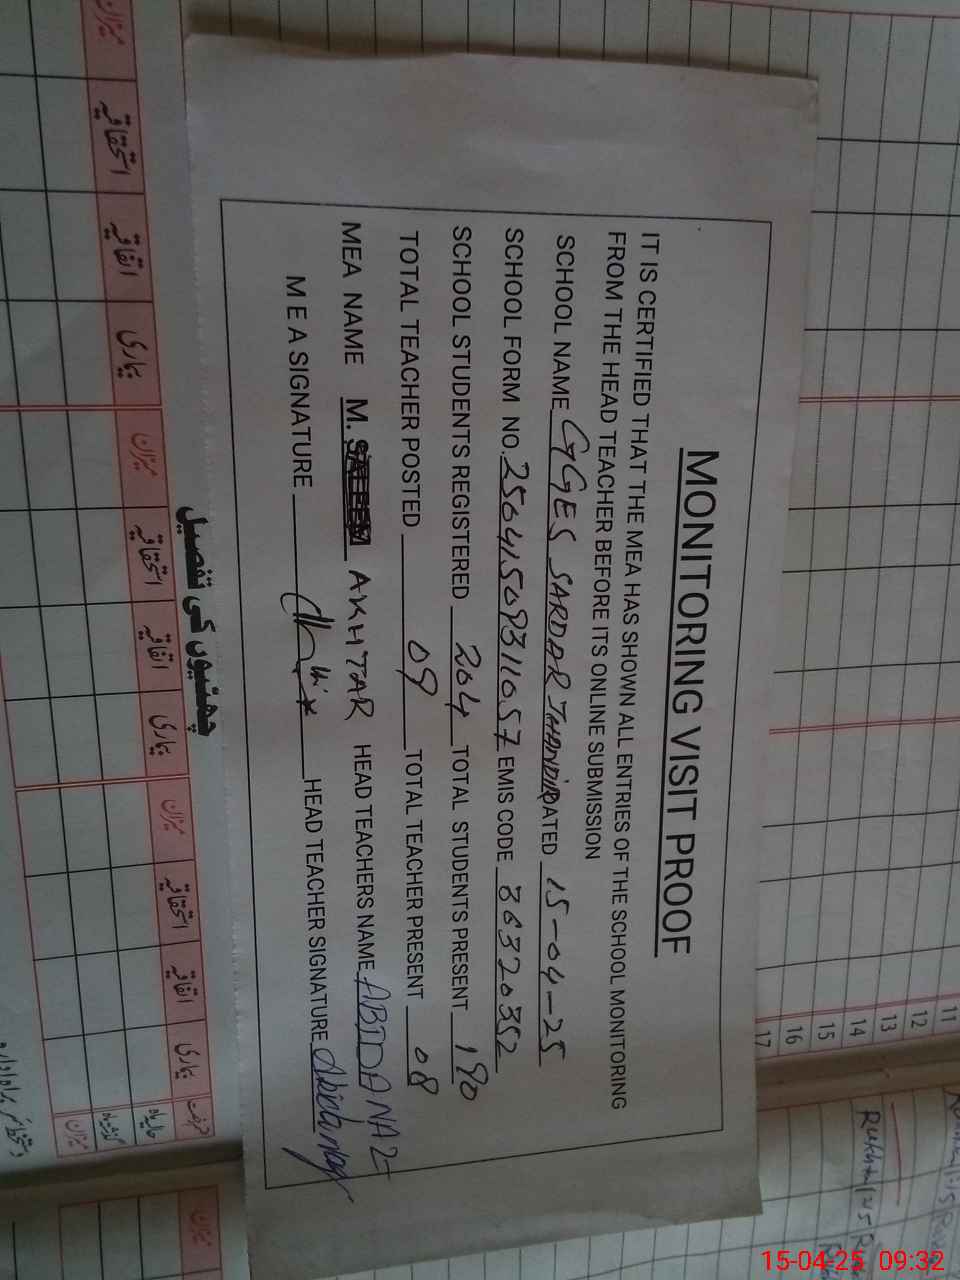 MONITORING VISIT PROOF
IT IS CERTIFIED THAT THE MEA HAS SHOWN ALL ENTRIES OF THE SCHOOL MONITORING
FROM THE HEAD TEACHER BEFORE ITS ONLINE SUBMISSION
SCHOOL NAME GGES SARDAR DATED 15-04-25
SCHOOL FORM NO. EMIS CODE 36320352
SCHOOL STUDENTS REGISTERED 204 TOTAL STUDENTS PRESENT 190
TOTAL TEACHER POSTED 09 TOTAL TEACHER PRESENT 08
MEA NAME M. AKHTAR HEAD TEACHERS NAME ABIDA NAZ
MEA SIGNATURE HEAD TEACHER SIGNATURE
چھٹیوں کی تفصیل
میزان
استحقاقیہ
اتفاقیہ
بیماری
میزان
استحقاقیہ
اتفاقیہ
بیماری
میزان
استحقاقیہ
اتفاقیہ
بیماری
میزان
11
12
13
14
15
16
17
15-04-25 09:32